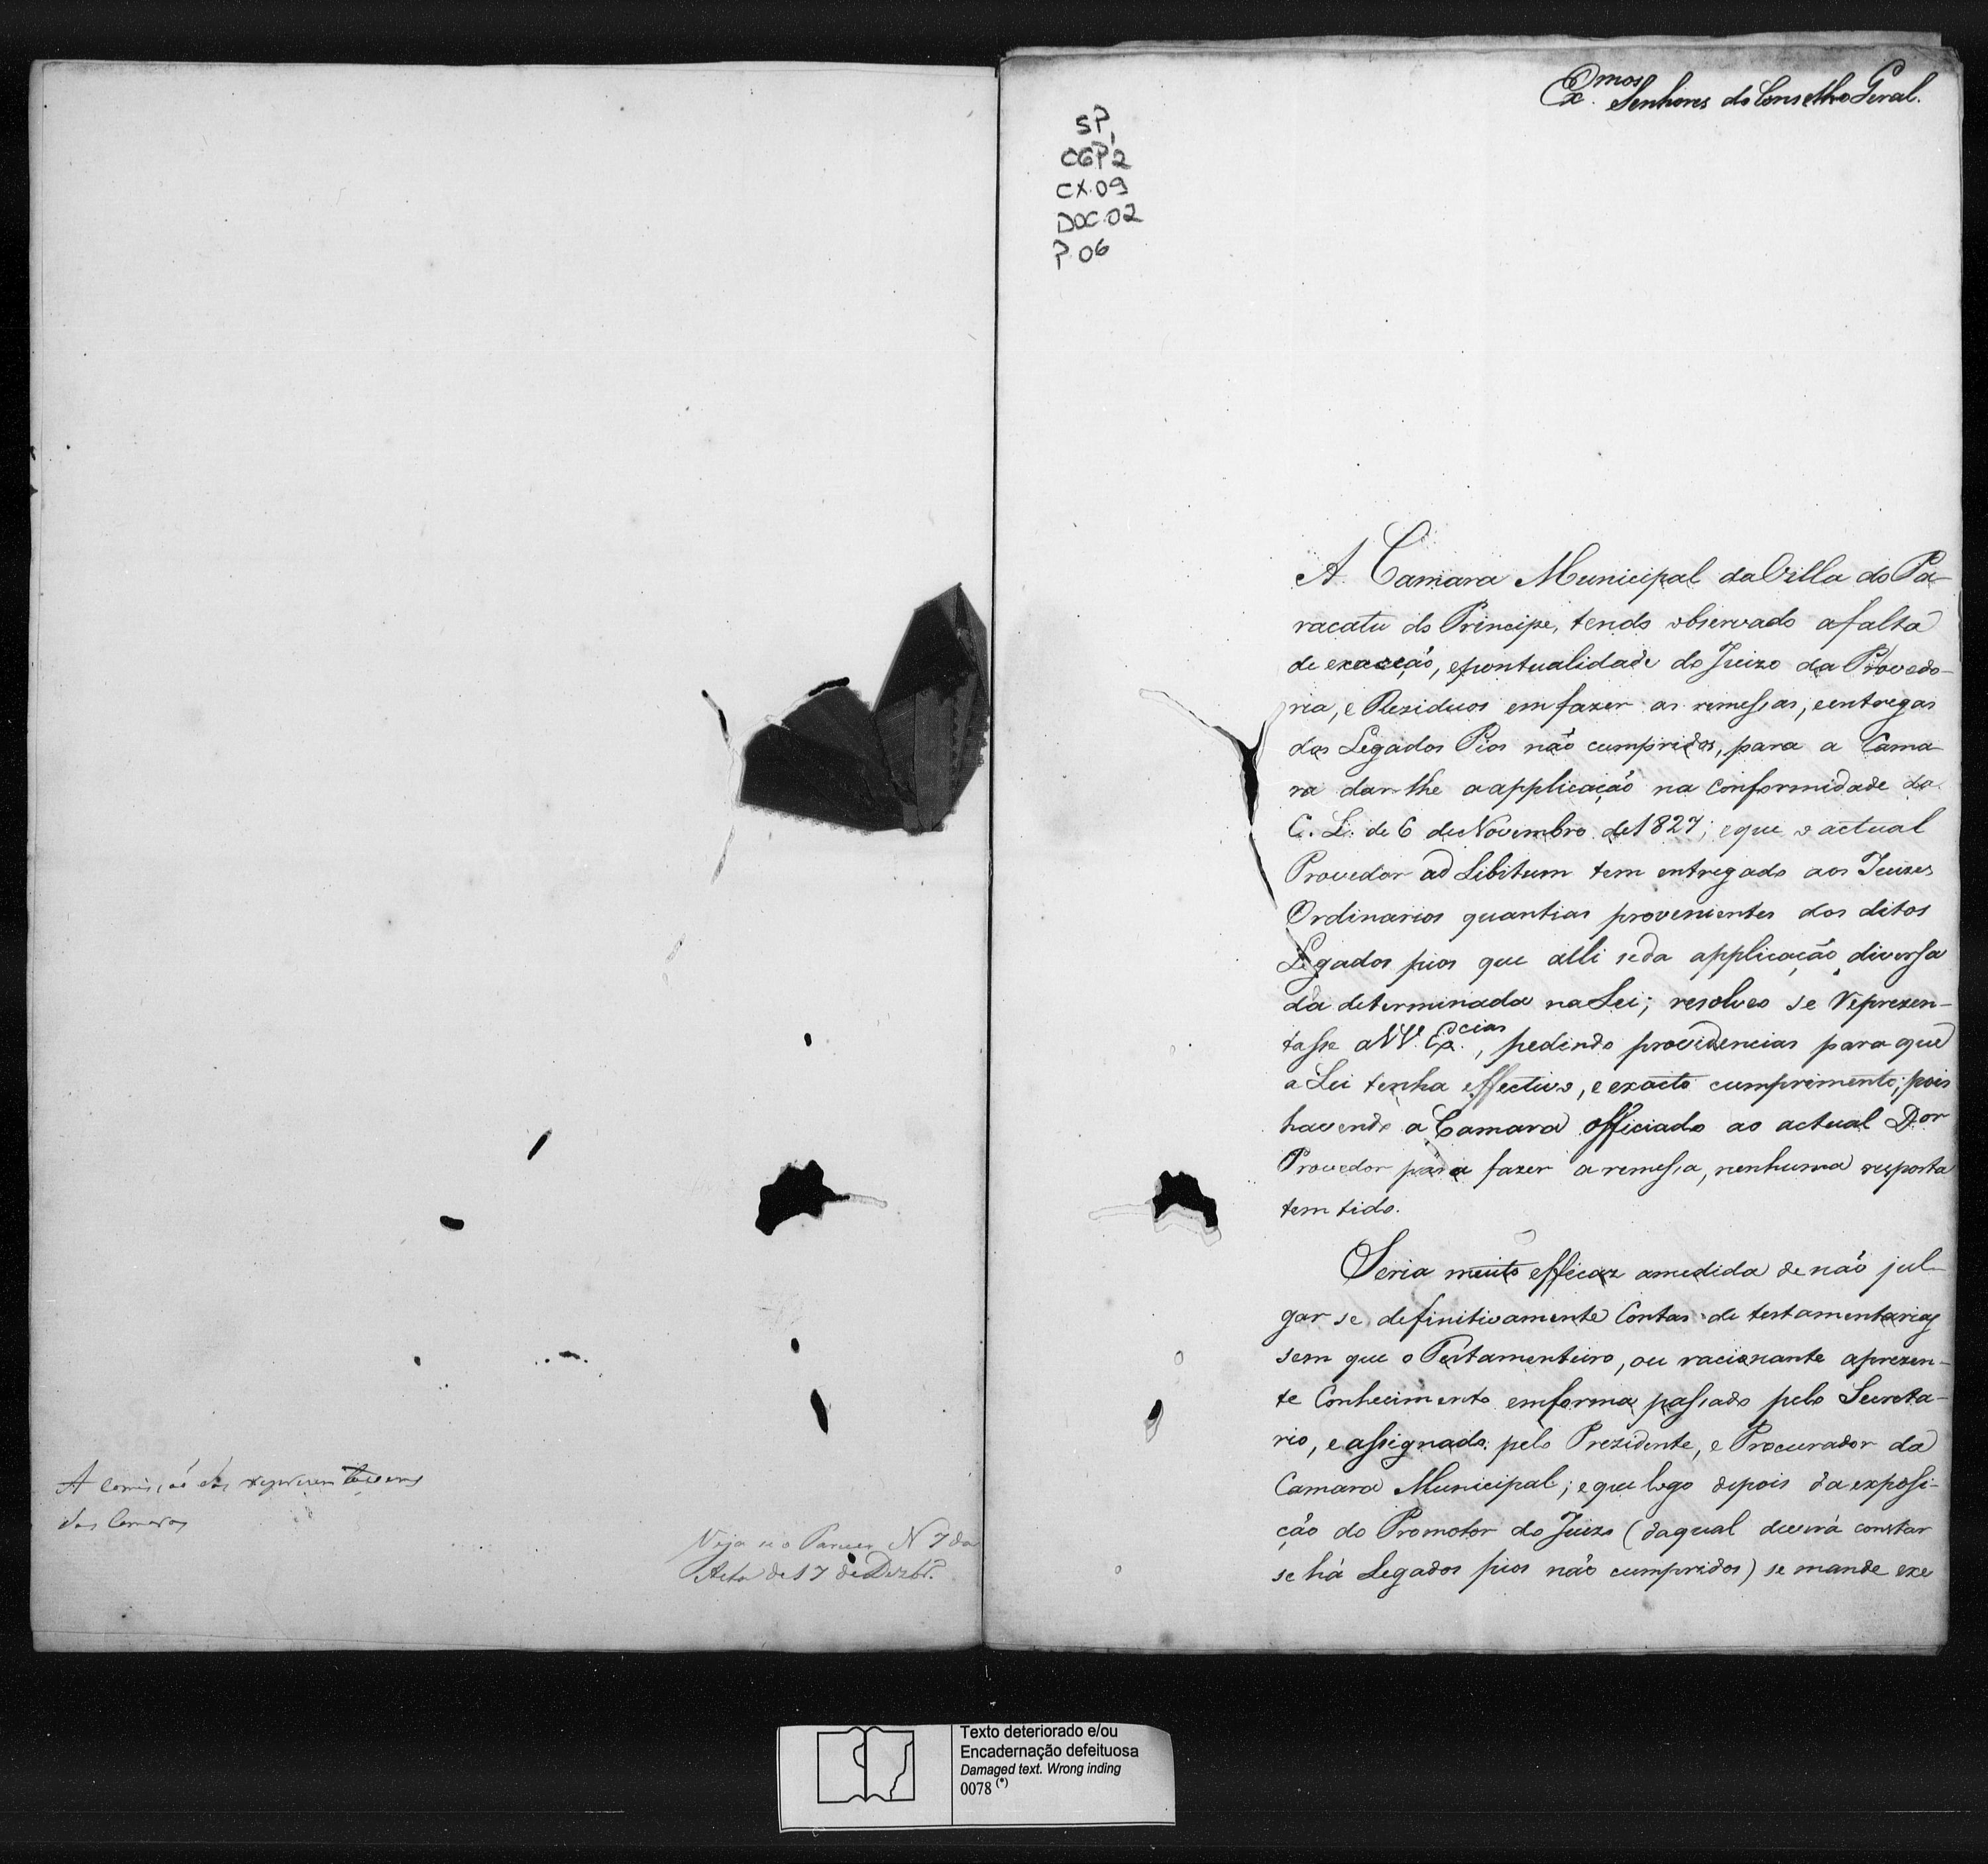 A Comissaõ das reprezentaçoens
das Camaras
Veja se o Parecer N 7 da
Acta de 17 de Dezbro.
SP,
CGP2
CX.09
DOC.02
P.06
Exmos Senhores do Conselho Geral.
A Camara Municipal da Villa do Pa-
racatu do Principe, tendo observado a falta
de exacção, e pontualidade do Juizo da Provedo-
ria, e Reziduos em fazer as remessas, e entregas
dos Legados Pios não cumpridos, para a Cama-
ra dar-lhe a applicação na conformidade da
C. L. de 6 de Novembro de 1827; e que o actual
Provedor ad Libitum tem entregado aos Juizes
Ordinarios quantias provenientes dos ditos
Legados pios que alli se da applicação diversa
da determinada na Lei; resolveo se reprezen-
tasse a VV. Excias, pedindo providencias para que
a Lei tenha effectivo, e exacto cumprimento; pois
havendo a Camara officiado ao actual Dor
Provedor para fazer a remessa, nenhuma resposta
tem tido.
Seria muito efficaz a medida de não jul-
gar se definitivamente Contas de testamentarias
sem que o Testamenteiro, ou racionante aprezen-
te Conhecimento em forma passado pelo Secreta-
rio, e assignado pelo Prezidente, e Procurador da
Camara Municipal; e que logo depois da exposi-
ção do Promotor do Juizo (da qual deverá constar
se há Legados pios não cumpridos) se mande exe
Texto deteriorado e/ou
Encadernação defeituosa
Damaged text. Wrong inding
0078 (*)